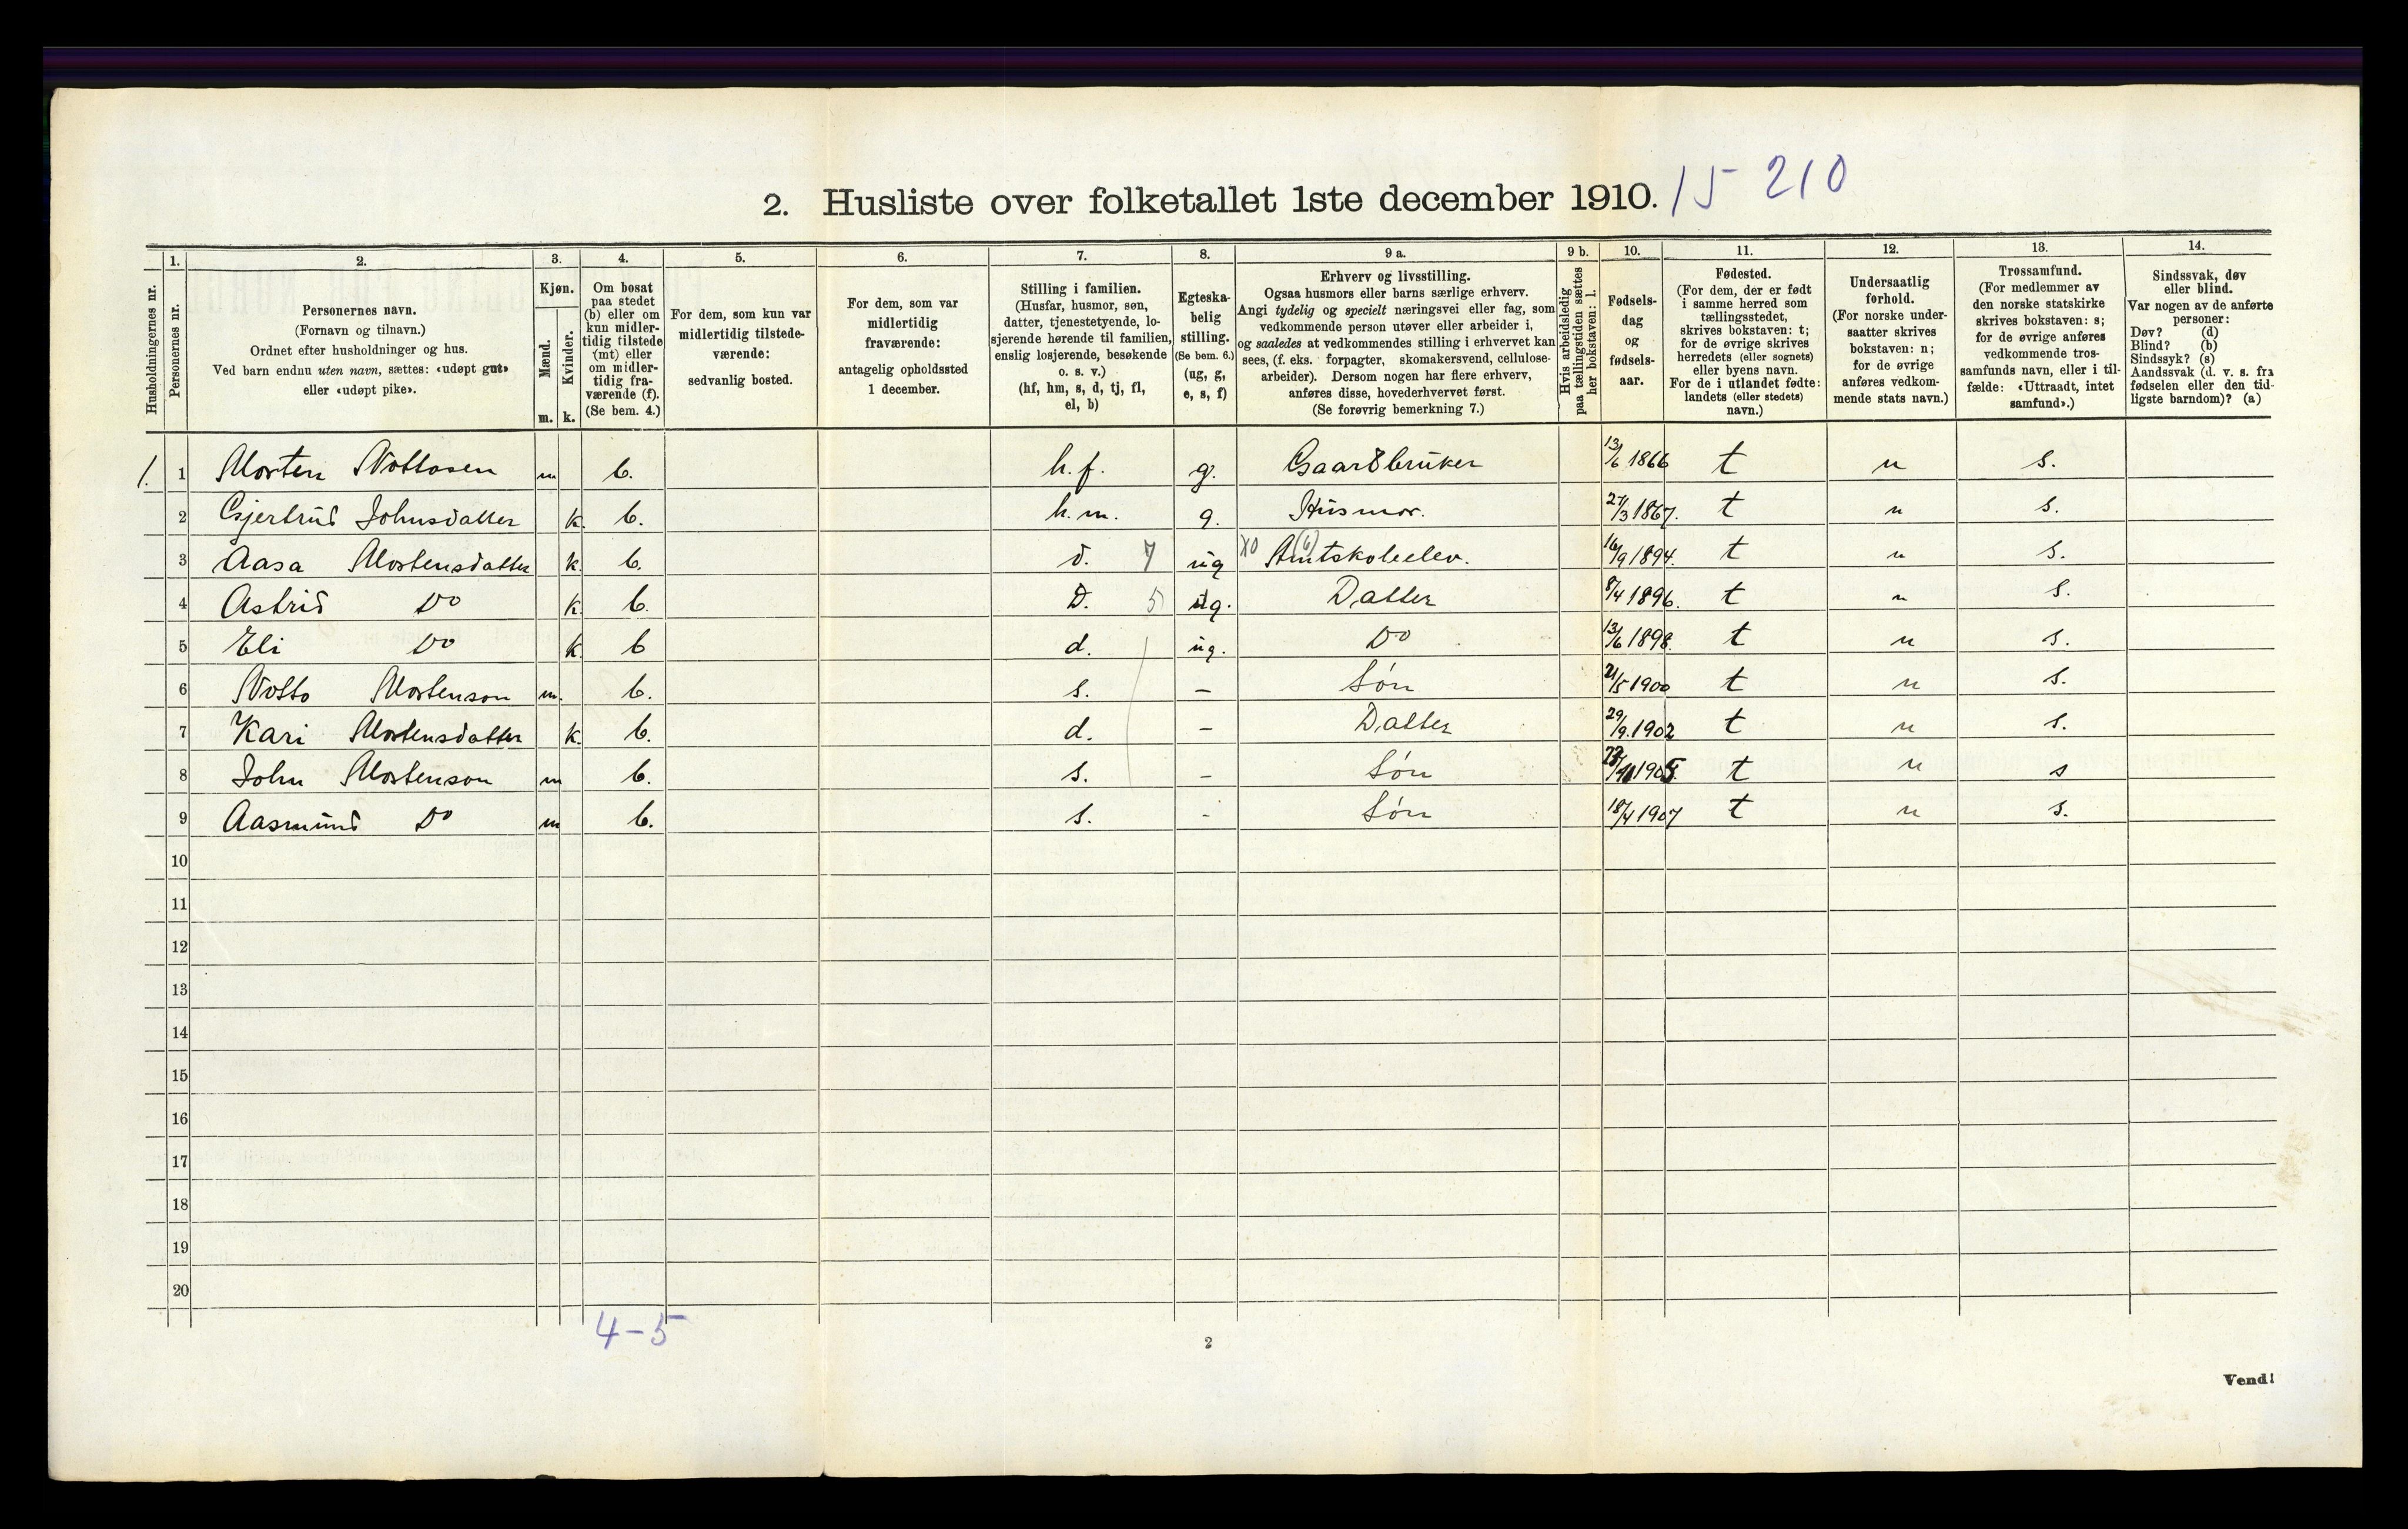 2. Husliste over folketallet 1ste december 1910. 15 210
1. 2. 3. 4. 5. 6. 7. 8. 9 a. 9 b. 10. 11. 12. 13. 14.
Husholdningernes nr.
Personernes nr.
Personernes navn.
(Fornavn og tilnavn.)
Ordnet efter husholdninger og hus.
Ved barn endnu uten navn, sættes: «udøpt gut»
eller «udøpt pike».
Kjøn.
Mænd.
m.
Kvinder.
k.
Om bosat
paa stedet
(b) eller om
kun midler-
tidig tilstede
(mt) eller
om midler-
tidig fra-
værende (f).
(Se bem. 4.)
For dem, som kun var
midlertidig tilstede-
værende:
sedvanlig bosted.
For dem, som var
midlertidig
fraværende:
antagelig opholdssted
1 december.
Stilling i familien.
(Husfar, husmor, søn,
datter, tjenestetyende, lo-
sjerende hørende til familien,
enslig losjerende, besøkende
o. s. v.)
(hf, hm, s, d, tj, fl,
el, b)
Egteska-
belig
stilling.
(Se bem. 6.)
(ug, g,
e, s, f)
Erhverv og livsstilling.
Ogsaa husmors eller barns særlige erhverv.
Angi tydelig og specielt næringsvei eller fag, som
vedkommende person utøver eller arbeider i,
og saaledes at vedkommendes stilling i erhvervet kan
sees, (f. eks. forpagter, skomakersvend, cellulose-
arbeider). Dersom nogen har flere erhverv,
anføres disse, hovederhvervet først.
(Se forøvrig bemerkning 7.)
Hvis arbeidsledig
paa tællingstiden sættes
her bokstaven: l.
Fødsels-
dag
og
fødsels-
aar.
Fødested.
(For dem, der er født
i samme herred som
tællingsstedet,
skrives bokstaven: t;
for de øvrige skrives
herredets (eller sognets)
eller byens navn.
For de i utlandet fødte:
landets (eller stedets)
navn.)
Undersaatlig
forhold.
(For norske under-
saatter skrives
bokstaven: n;
for de øvrige
anføres vedkom-
mende stats navn.)
Trossamfund.
(For medlemmer av
den norske statskirke
skrives bokstaven: s;
for de øvrige anføres
vedkommende tros-
samfunds navn, eller i til-
fælde: «Uttraadt, intet
samfund».)
Sindssvak, døv
eller blind.
Var nogen av de anførte
personer:
Døv? (d)
Blind? (b)
Sindssyk? (s)
Aandssvak (d. v. s. fra
fødselen eller den tid-
ligste barndom)? (a)
1. 1 Morten Nottosen m b. h.f. g. Gaardbruker 13/6 1866 t n s.
2 Gjertrud Johnsdatter k. b. h.m. g. Husmor. 27/3 1867. t n s.
3 Aasa Mortensdatter k b. d. 7 ug X0 Amtskoleelev. (6) 16/9 1894. t n s.
4 Astrid Do k. b. D. 5 ug. Datter 8/4 1896. t n s.
5 Eli Do k. b d. ug. Do 13/6 1898. t n s.
6 Notto Mortenson m. b. s. – Søn 21/5 1900 t n s.
7 Kari Mortensdatter k. b. d. – Datter 29/9. 1902 t n s.
8 John Mortenson m b. s. – Søn 1905. t n s
9 Aasmund Do m b. s. - Søn 18/4 1907 t n s.
10
11
12
13
14
15
16
17
18
19
20
4-5
2
Vend!